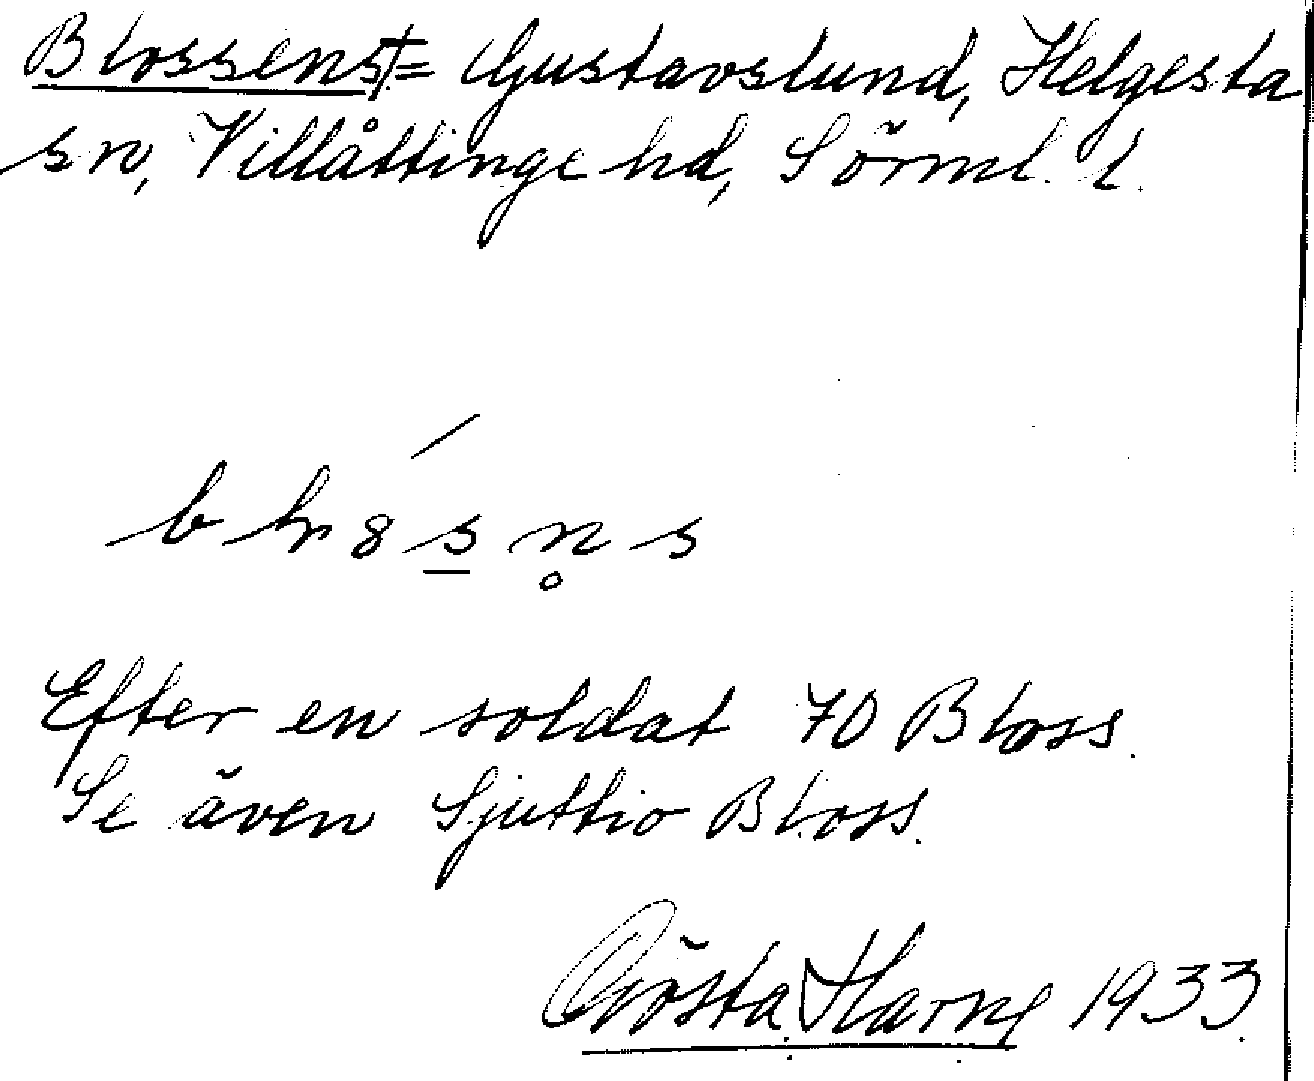 Blossens† = Gustavslund, Helgesta
sn, Villåttinge hd, Sörml. l.
Efter en soldat 70 Bloss.
Se även Sjuttio Bloss.
Gösta Harne 1933.